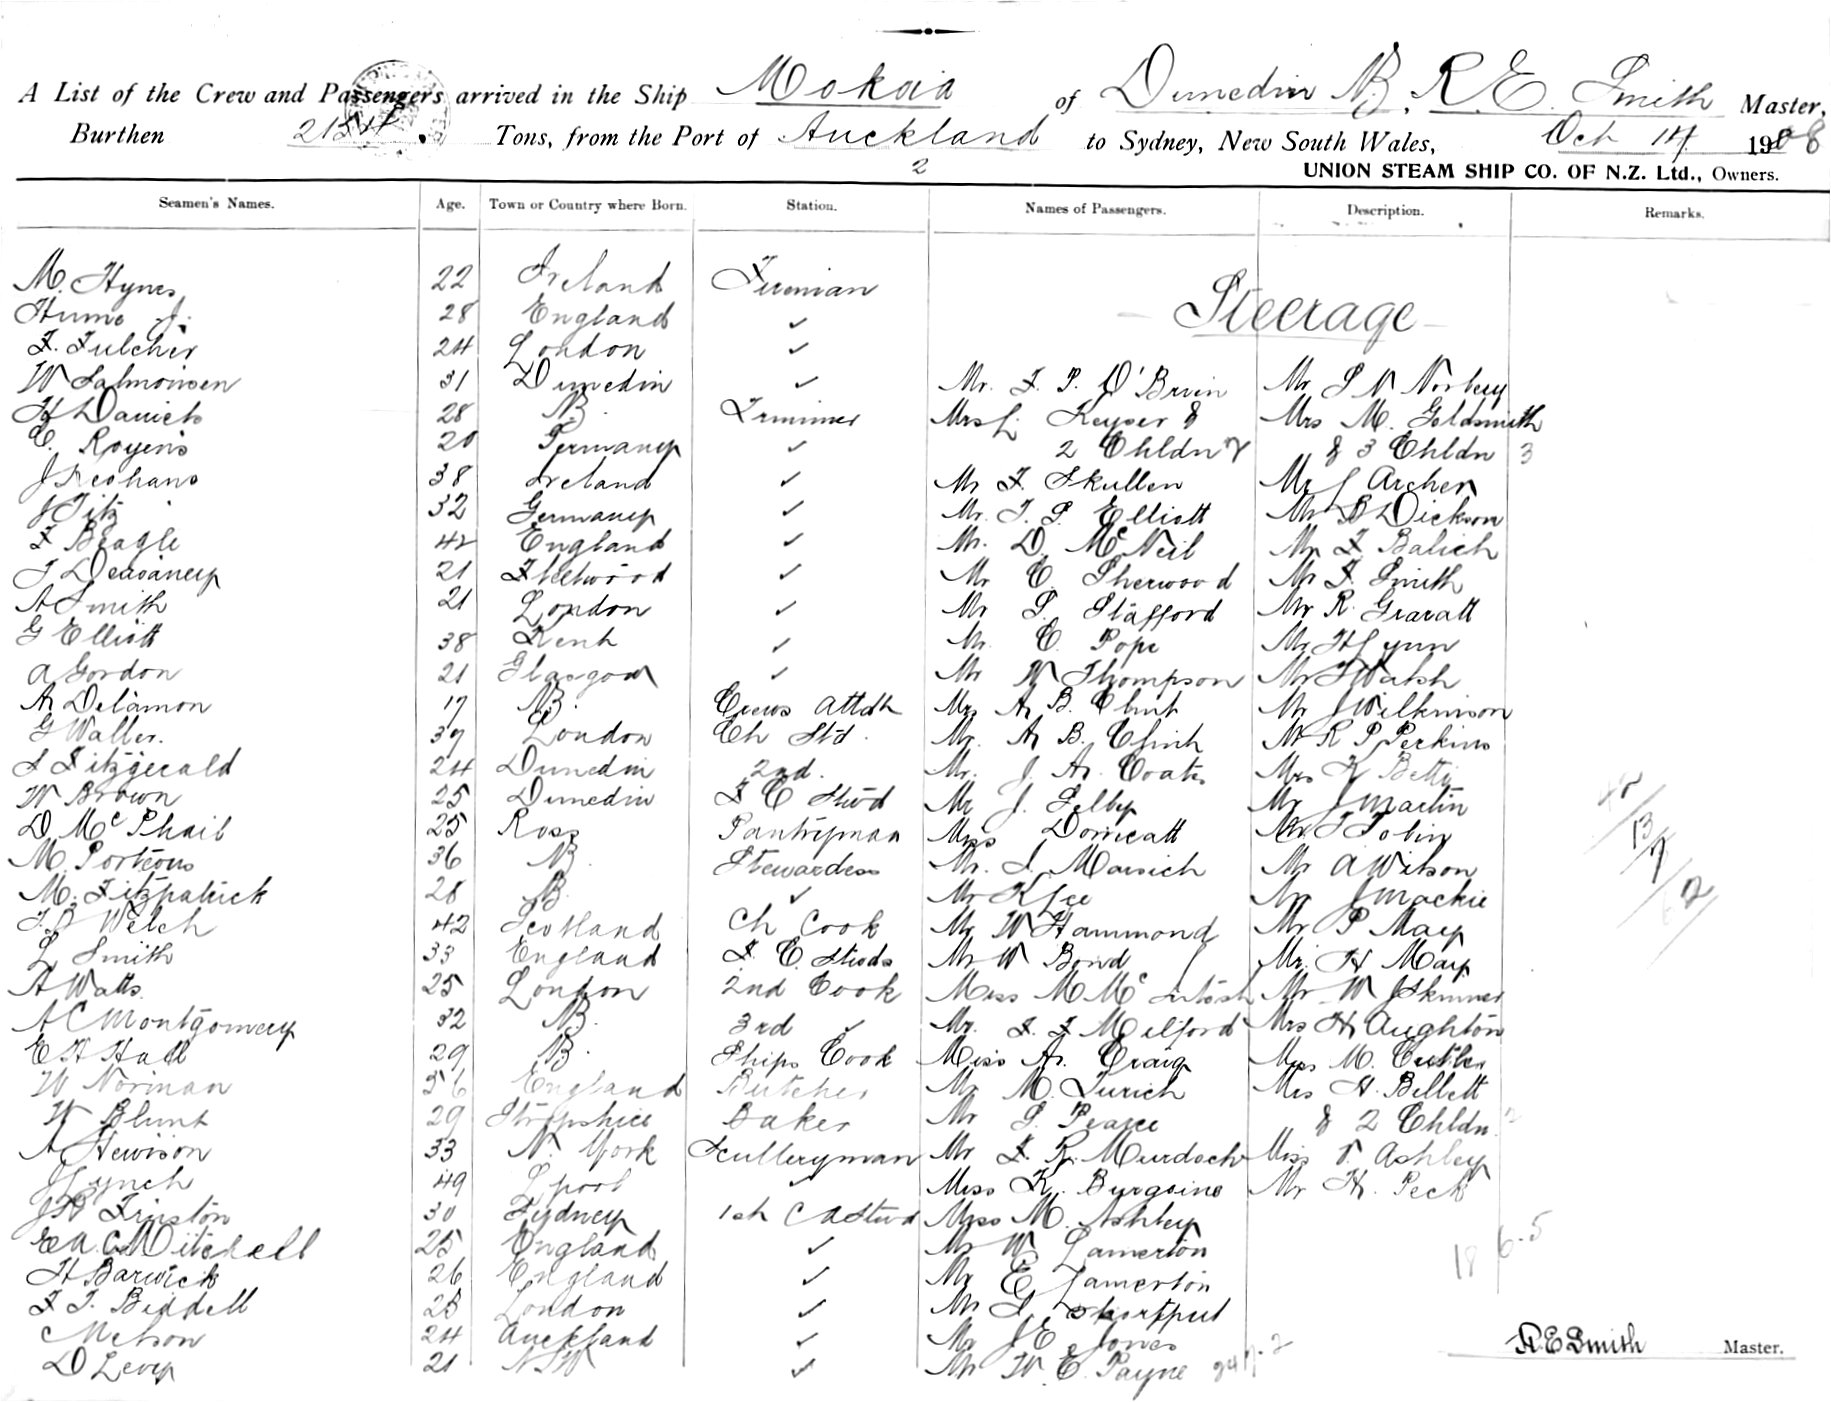 A List of the Crew and Passengers arrived in the Ship Mokoia of Dunedin N.Z., R. E. Smith Master,
Burthen 2154 Tons, from the Port of Auckland to Sydney, New South Wales, Oct 14 1908
2
UNION STEAM SHIP CO. OF N.Z. Ltd., Owners.
Seamen's Names. Age. Town or Country where Born. Station. Names of Passengers. Description. Remarks.
M. Hynes 22 Ireland Fireman
Steerage
Hume J. 28 England ✓
F. Fulcher 24 London ✓
W 31 Dunedin ✓ Mr. F. P. Mr
H Daniels 28 Trimmer Mrs L. Keyser & Mrs M. Goldsmith
C. Royens 20 Germany ✓ 2 Chldn & 3 Chldn 3
J 38 Ireland ✓ Mr F. Skullen Mr J Archer
J Fitz 32 Germany ✓ Mr. T. S. Elliott Mr D Dickson
F Beagle 42 England ✓ Mr. D. McNeil Mr F Balich
J 21 Fleetwood ✓ Mr C. Sherwood Mr F. Smith
A Smith 21 London ✓ Mr S. Stafford Mr R. Gravatt
G Elliott 38 Kent ✓ Mr. C. Pope Mr H Lynn
A Gordon 21 Glasgow ✓ Mr W Thompson Mr T Walsh
A. Delamon 17 Crews Attdt Mrs A. B. Clint Mr J Wilkinson
G Waller. 37 London Ch Std. Mr. A. B. Clint Mr R P Perkins
J Fitzgerald 24 Dunedin 2nd. Mr. J. A. Coates Mrs K Betty
W Brown 25 Dunedin F C Stwd Mr J. Selby Mr J Martin
D. McPhail 25 Ross Pantryman Miss Mr T Tobin
M. Porteous 36 Stewardess Mr. J. Marsich Mr A Wilson
M. Fitzpatrick 28 ✓ Mr K Lee Mr J Mackie
T. D Welch 42 Scotland Ch Cook Mr W Hammond Mr P May
L Smith 33 England F. C. Stwds Mr W Bond Mr. H May
A Watts. 25 London 2nd Cook Miss M McIntosh Mr W J Skinner
A C Montgomery 32 3rd ✓ Mr. F. F. Milford Mrs H Aughton
E H Hall 29 Ships Cook Miss A. Craig Miss M. Cutler
W Norman 36 England Butcher Mr M. Jurich Mrs H. Billett
W Blunt 29 Shropshire Baker Mr S. Pearce & 2 Chldn 2
A Hewison 33 N. York Sculleryman Mr F. R. Murdoch Miss V. Ashley
J Lynch 49 Lpool ✓ Miss K. Burgoine Mr H. Peck
J H Finston 30 Sydney 1st C A Stwd Miss M. Ashley
E A. C. Mitchell 25 England ✓ Mr W Lamerton
H Barwick 26 England ✓ Mr E Lamerton
F. T. Biddell 28 London ✓ Mr
C Nelson 24 Auckland ✓ Mr J E Jones
R. E Smith Master.
D Levy 21 N S W ✓ Mr W. E. Payne